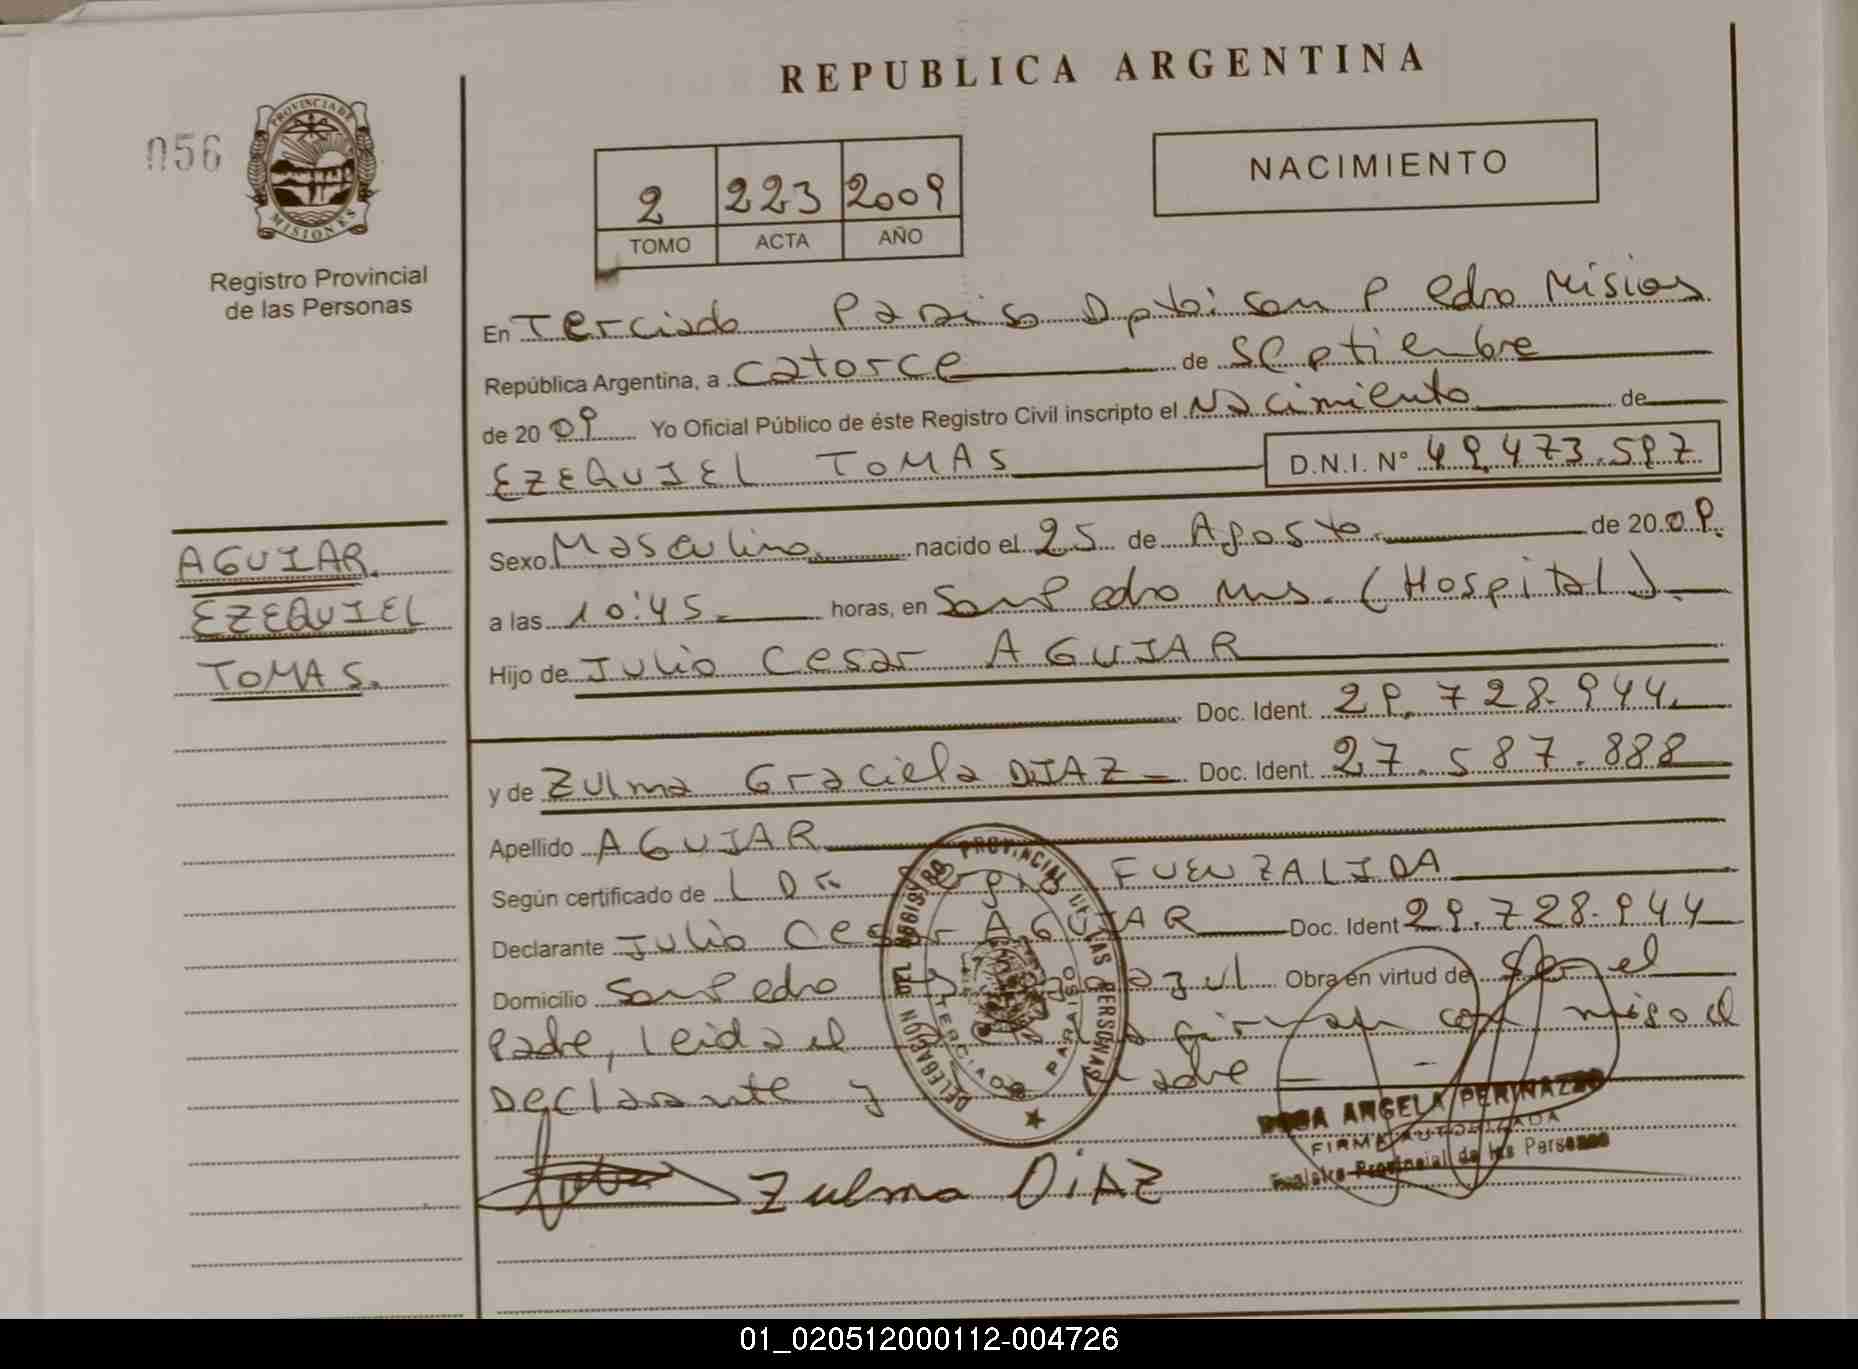 REPUBLICA ARGENTINA
056
PROVINCIA DE
MISIONES
Registro Provincial
de las Personas
NACIMIENTO
2 223 2009
TOMO ACTA AÑO
En Terciado Paraiso Dpto: San Pedro Misiones
República Argentina, a catorce de Septiembre
de 2009 Yo Oficial Público de éste Registro Civil inscripto el Nacimiento de
EZEQUIEL TOMAS D.N.I. N° 49.473.597
AGUIAR
EZEQUIEL
TOMAS.
Sexo Masculino nacido el 25 de Agosto de 2009.
a las 10:45. horas, en San Pedro Mns. (Hospital).
Hijo de Julio Cesar AGUIAR
Doc. Ident. 29.728.944.
y de Zulma Graciela DIAZ Doc. Ident. 27.587.888
Apellido AGUIAR
Según certificado de FUENZALIDA
Declarante Julio Cesar AGUIAR Doc. Ident 29.728.944
Domicilio San Pedro azul Obra en virtud de Ser el
Padre, leida el firman con migo el
Declarante y Madre
DELEGACION DEL REGISTRO PROVINCIAL DE LAS PERSONAS
TERCIADO PARAISO
Zulma DiAZ
ROSA ANGELA PERINAZZO
FIRMA AUTORIZADA
Provincial de las Personas
01_020512000112-004726